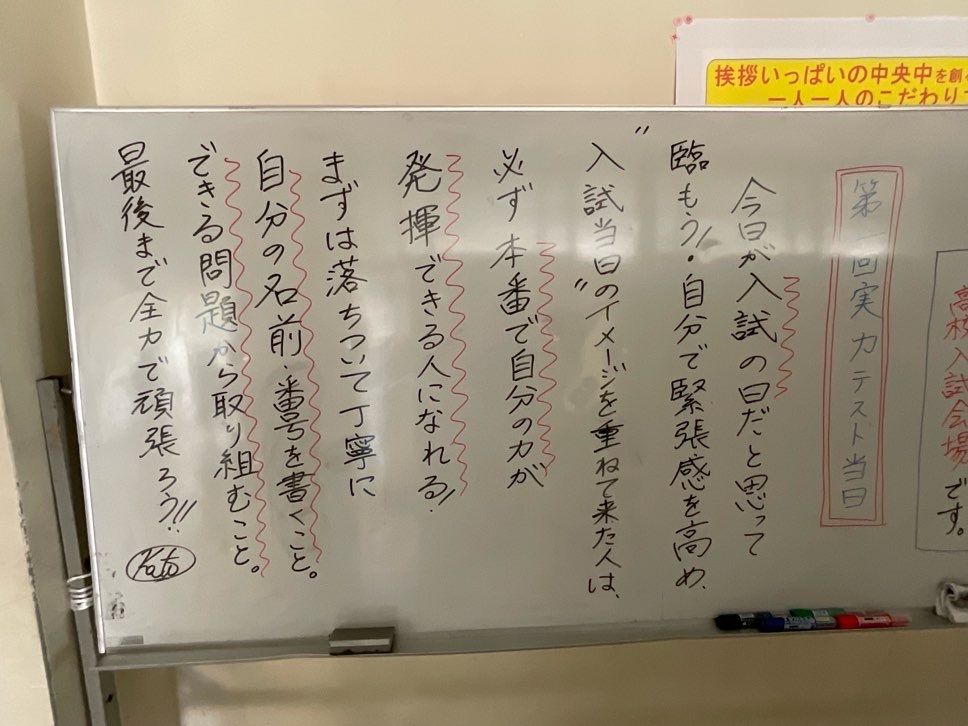 挨拶いっぱいの中央中を創
一人一人のこだわり
高校入試会場
です。
第一回実力テスト当日
今日が入試の日だと思って
臨もう!自分で緊張感を高め、
“入試当日”のイメージを重ねて来た人は、
必ず本番で自分の力が
発揮できる人になれる!
まずは落ちついて丁寧に
自分の名前・番号を書くこと。
できる問題から取り組むこと。
最後まで全力で頑張ろう!!